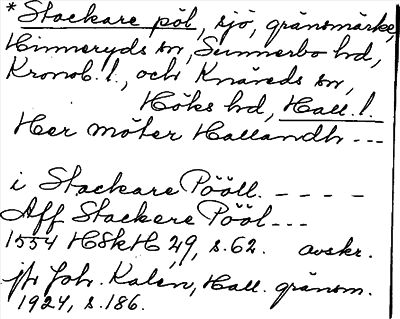 * Stackare pöl, sjö, gränsmärke,
Hinneryds sn, Sunnerbo hd,
Kronob. l., och Knäreds sn,
Höks hd, Hall. l.
Her möter Hallandh ---
i Stackare Pööll. ----
Aff Stackere Pööl ---
1554 HSkH 29, s. 62. avskr.
jfr Joh. Kalén, Hall. gränsm.
1924, s. 186.